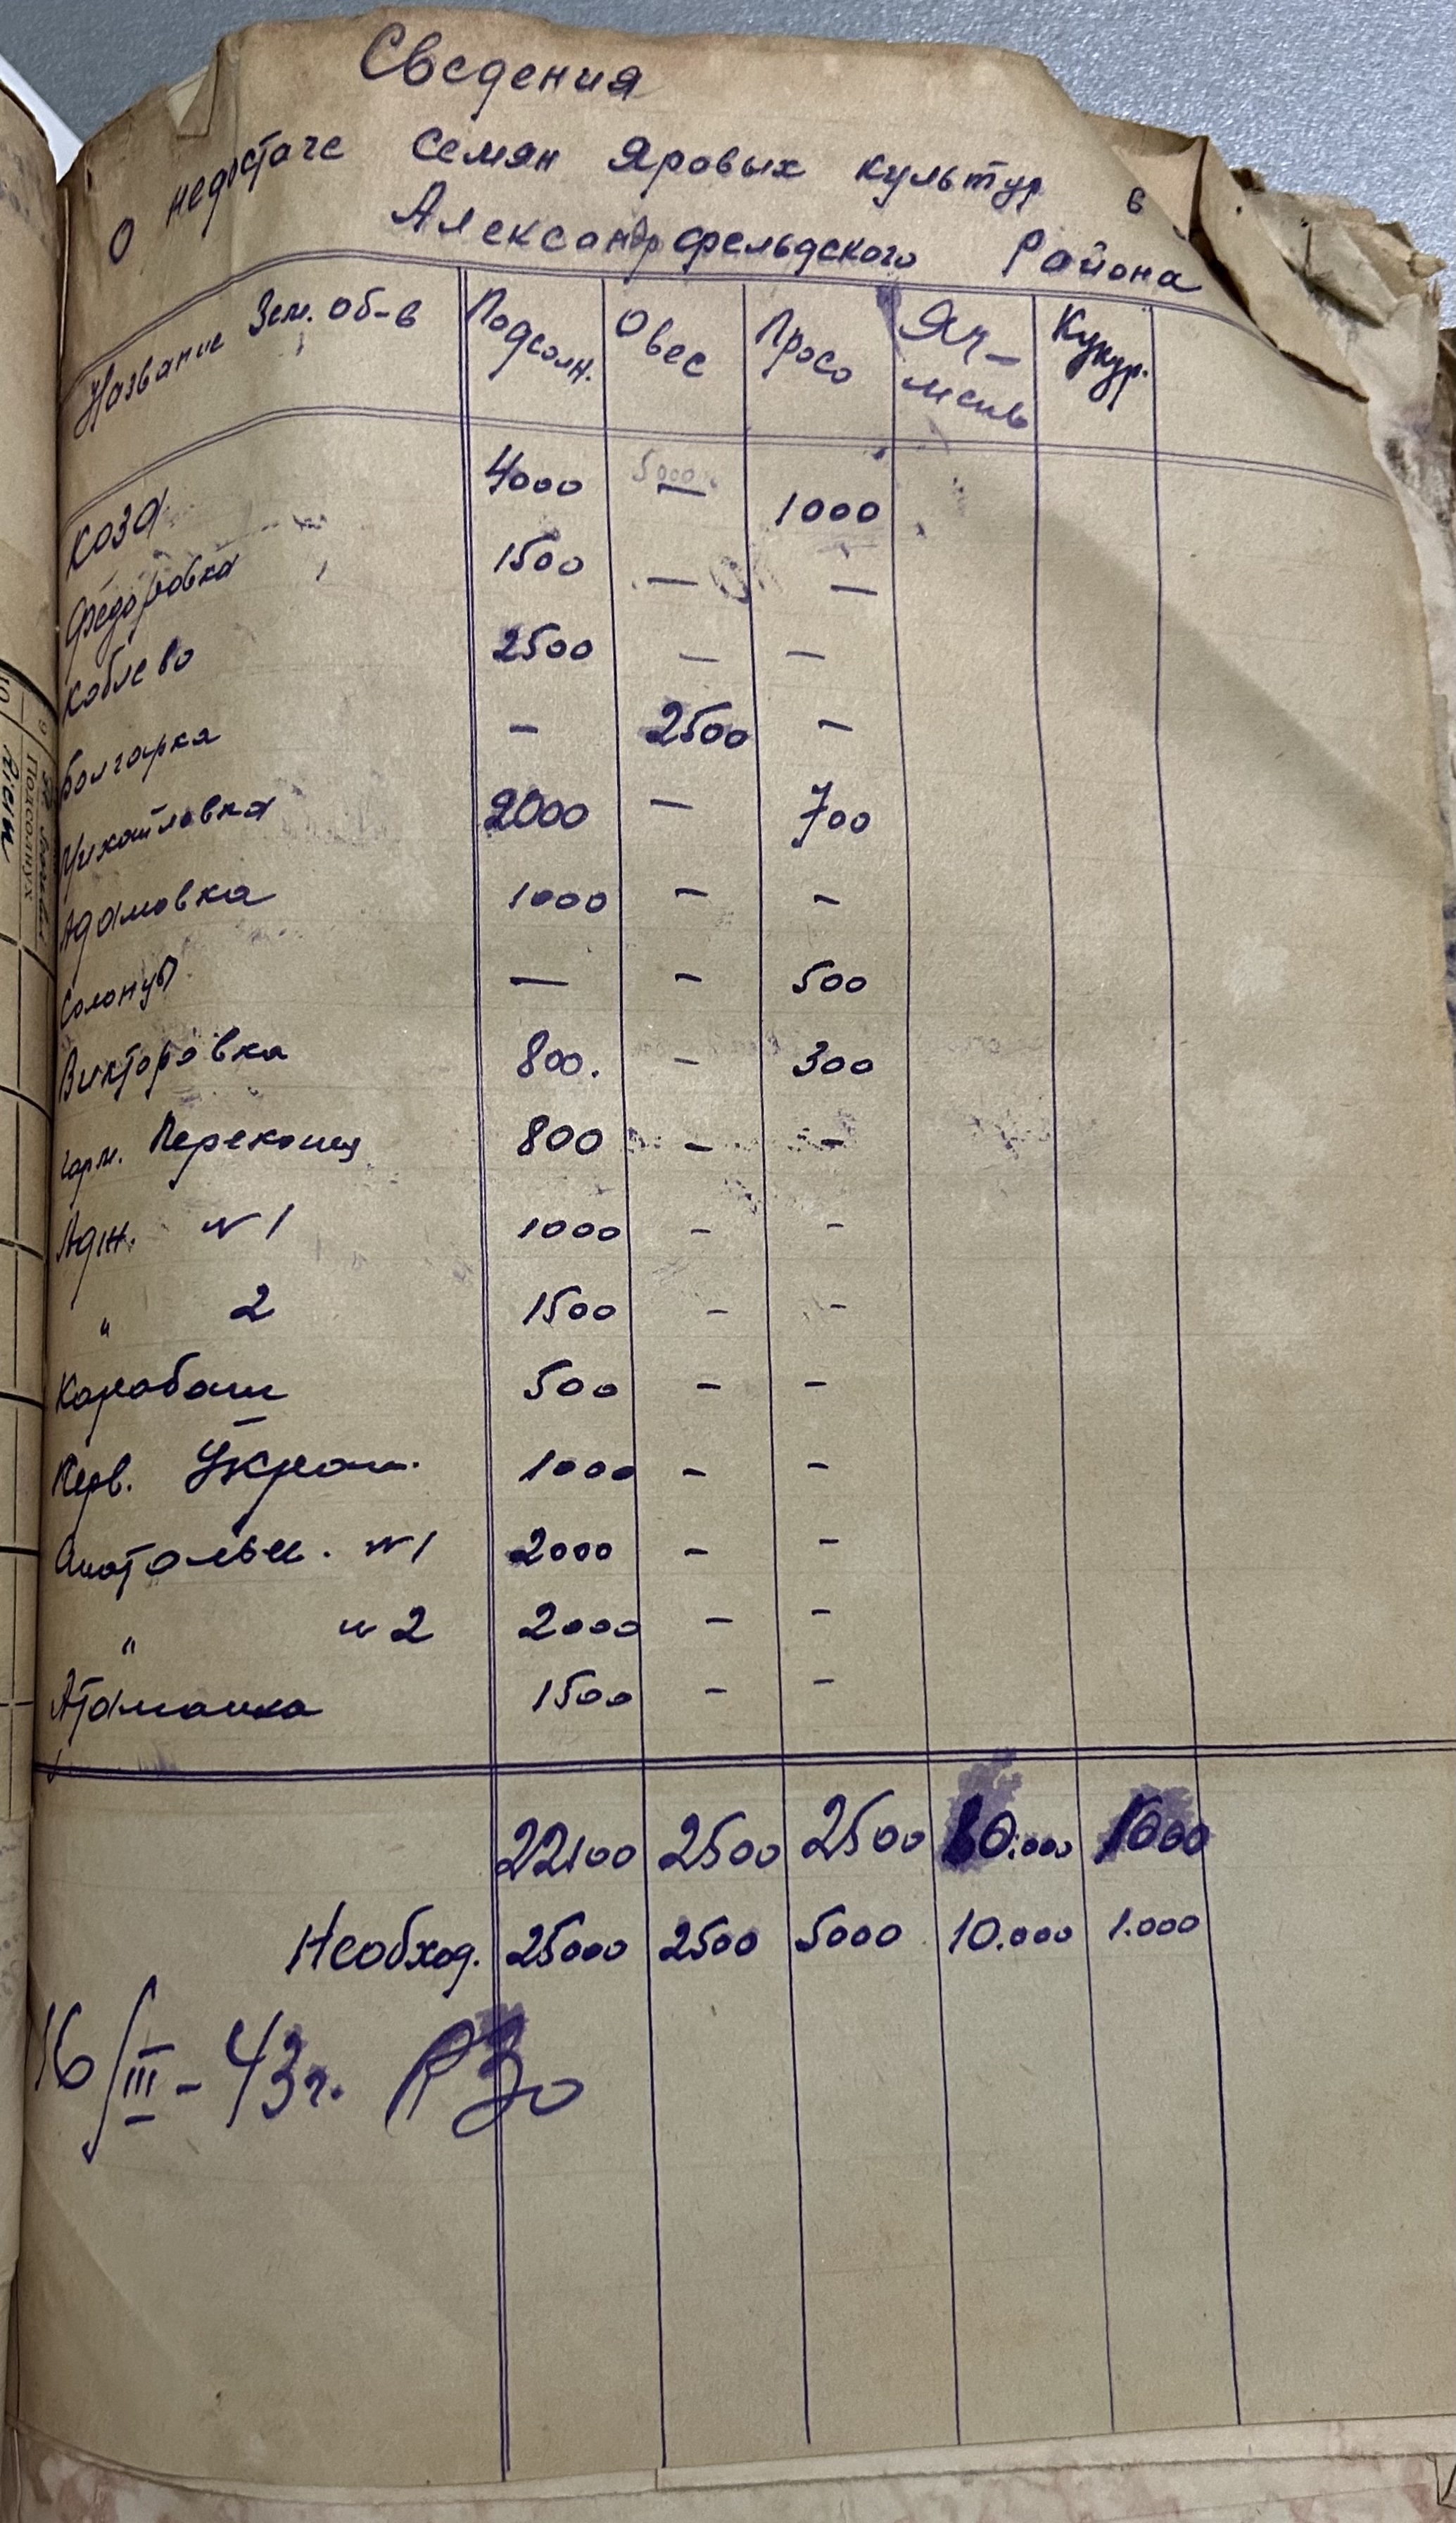 Сведения
О недостаче семян яровых культур в
Александрфельдского Района
Название Зем. об-в Подсолн. Овес Просо Яч- Кукур.
мень
Коза 4000 — 1000
Федоровка 1500 — —
Коблево 2500 — —
Болгарка — 2500 —
Михайловка 2000 — 700
Адамовка 1000 — —
Солонцы — — 500
Викторовка 800. — 300
Перекоп 800 — —
Адж. №1 1000 — —
" 2 1500 — —
Карабаш 500 — —
Черв. Украин. 1000 — —
Анатольев. №1 2000 — —
" №2 2000 — —
Атаманка 1500 — —
22100 2500 2500 10.000 1000
Необход. 25000 2500 5000 10.000 1.000
16/III-43г. РЗО
Подсолнух